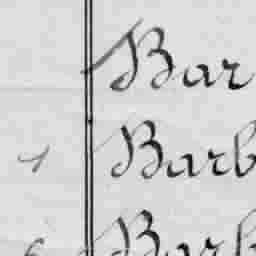 Bar
1 Barb
Barb